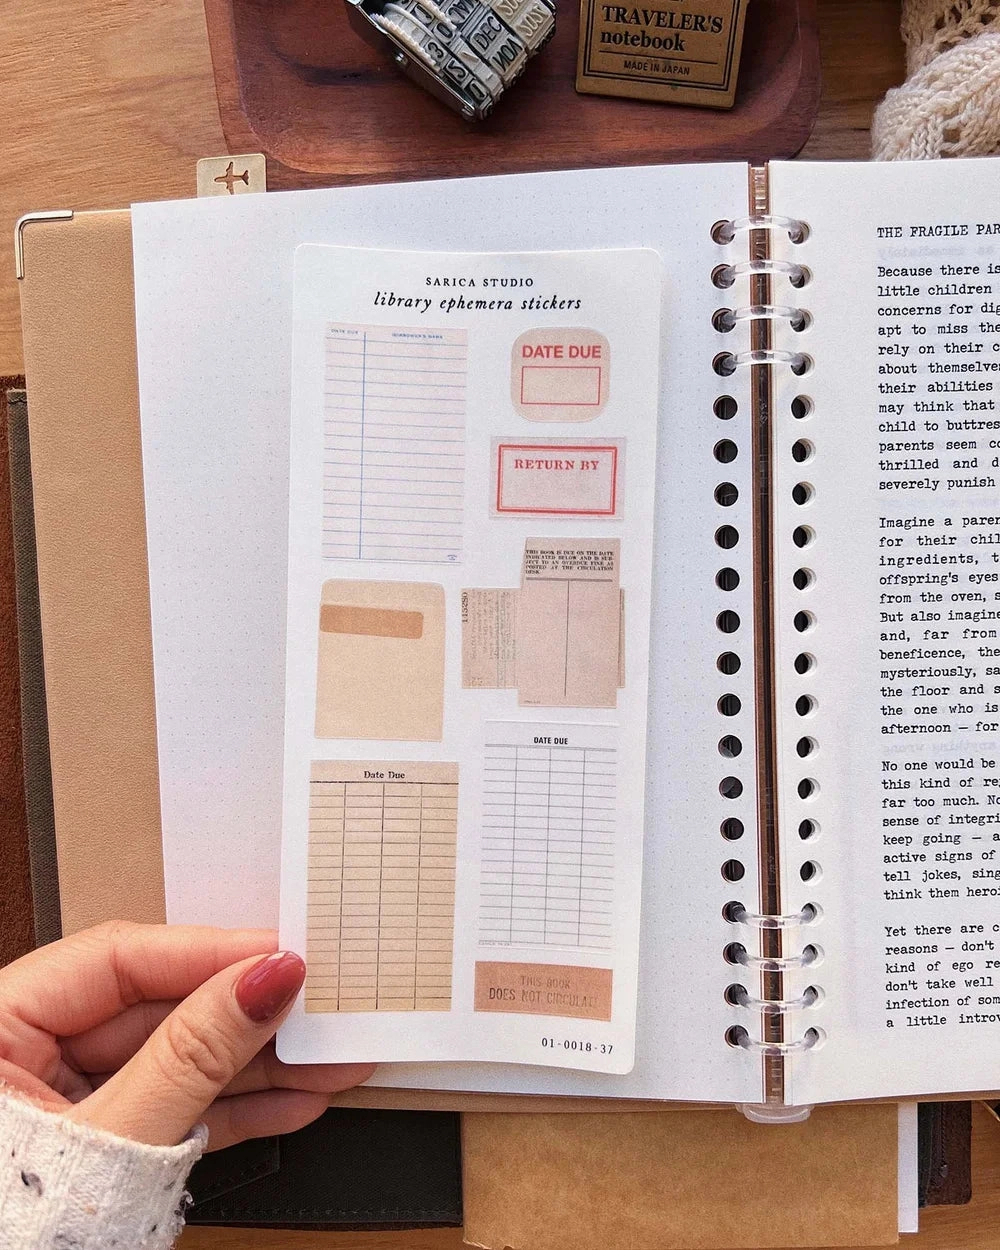 DEC
NOV
TRAVELER'S
notebook
MADE IN JAPAN
SARICA STUDIO
library ephemera stickers
DATE DUE
BORROWER'S NAME
DATE DUE
RETURN BY
THIS BOOK IS DUE ON THE DATE
INDICATED BELOW AND IS SUB-
JECT TO AN OVERDUE FINE AS
POSTED AT THE CIRCULATION
DESK.
Date Due
DATE DUE
THIS BOOK
DOES NOT CIRCULATE
01-0018-37
THE FRAGILE PAR
Because there is
little children
concerns for dig
apt to miss the
rely on their c
about themselve
their abilities
may think that
child to buttres
parents seem co
thrilled and d
severely punish
Imagine a paren
for their chil
ingredients, t
offspring's eyes
from the oven, s
But also imagine
and, far from
beneficence, the
mysteriously, sa
the floor and s
the one who is
afternoon — for
No one would be
this kind of re
far too much. No
sense of integri
keep going — a
active signs of
tell jokes, sing
think them hero
Yet there are c
reasons — don't
kind of ego re
don't take well
infection of som
a little introv